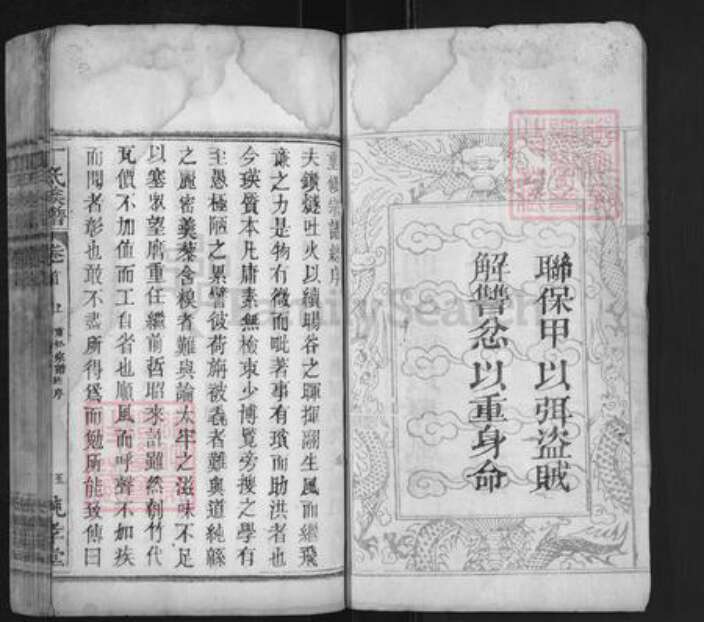 聯保甲以弭盜賊
解讐忿以重身命
重修宗譜總序
夫鑽燧吐火以續暘谷之暉揮翮生風而繼飛
亷之力是物有微而毗著事有瑣而助洪者也
今瑛質本凡庸素無檢束少博覽旁搜之學有
至愚極陋之累譬彼荷旃被毳者難與道純緜
之麗密羹藜含糗者難與論太牢之滋味不足
以塞眾望膺重任繼前哲昭來許雖然削竹代
瓦價不加值而工自省也順風而呼聲不加疾
而聞者彰也敢不盡所得爲而勉所能致傳曰
丁氏族譜
卷首
上
序
五
純孝堂
FamilySearch